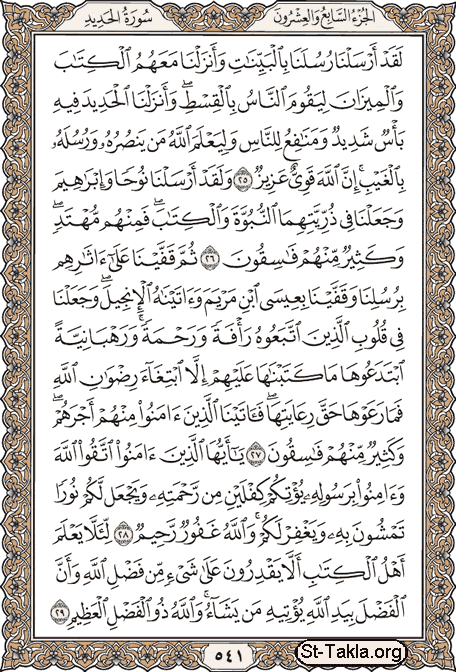 سُورَةُ الحَدِيدِ الجُزْءُ السَّابِعُ وَالعِشْرُونَ
لَقَدْ أَرْسَلْنَا رُسُلَنَا بِالْبَيِّنَاتِ وَأَنزَلْنَا مَعَهُمُ الْكِتَابَ
وَالْمِيزَانَ لِيَقُومَ النَّاسُ بِالْقِسْطِ ۖ وَأَنزَلْنَا الْحَدِيدَ فِيهِ
بَأْسٌ شَدِيدٌ وَمَنَافِعُ لِلنَّاسِ وَلِيَعْلَمَ اللَّهُ مَن يَنصُرُهُ وَرُسُلَهُ
بِالْغَيْبِ ۚ إِنَّ اللَّهَ قَوِيٌّ عَزِيزٌ ٢٥ وَلَقَدْ أَرْسَلْنَا نُوحًا وَإِبْرَاهِيمَ
وَجَعَلْنَا فِي ذُرِّيَّتِهِمَا النُّبُوَّةَ وَالْكِتَابَ ۖ فَمِنْهُم مُّهْتَدٍ ۖ
وَكَثِيرٌ مِّنْهُمْ فَاسِقُونَ ٢٦ ثُمَّ قَفَّيْنَا عَلَىٰ ءَاثَارِهِم
بِرُسُلِنَا وَقَفَّيْنَا بِعِيسَى ابْنِ مَرْيَمَ وَءَاتَيْنَاهُ الْإِنجِيلَ ۖ وَجَعَلْنَا
فِي قُلُوبِ الَّذِينَ اتَّبَعُوهُ رَأْفَةً وَرَحْمَةً ۚ وَرَهْبَانِيَّةً
ابْتَدَعُوهَا مَا كَتَبْنَاهَا عَلَيْهِمْ إِلَّا ابْتِغَاءَ رِضْوَانِ اللَّهِ
فَمَا رَعَوْهَا حَقَّ رِعَايَتِهَا ۖ فَـَٔاتَيْنَا الَّذِينَ ءَامَنُوا مِنْهُمْ أَجْرَهُمْ ۖ
وَكَثِيرٌ مِّنْهُمْ فَاسِقُونَ ٢٧ يَا أَيُّهَا الَّذِينَ ءَامَنُوا اتَّقُوا اللَّهَ
وَءَامِنُوا بِرَسُولِهِ يُؤْتِكُمْ كِفْلَيْنِ مِن رَّحْمَتِهِ وَيَجْعَل لَّكُمْ نُورًا
تَمْشُونَ بِهِ وَيَغْفِرْ لَكُمْ ۚ وَاللَّهُ غَفُورٌ رَّحِيمٌ ٢٨ لِّئَلَّا يَعْلَمَ
أَهْلُ الْكِتَابِ أَلَّا يَقْدِرُونَ عَلَىٰ شَيْءٍ مِّن فَضْلِ اللَّهِ ۙ وَأَنَّ
الْفَضْلَ بِيَدِ اللَّهِ يُؤْتِيهِ مَن يَشَاءُ ۚ وَاللَّهُ ذُو الْفَضْلِ الْعَظِيمِ ٢٩
٥٤١
St-Takla.org